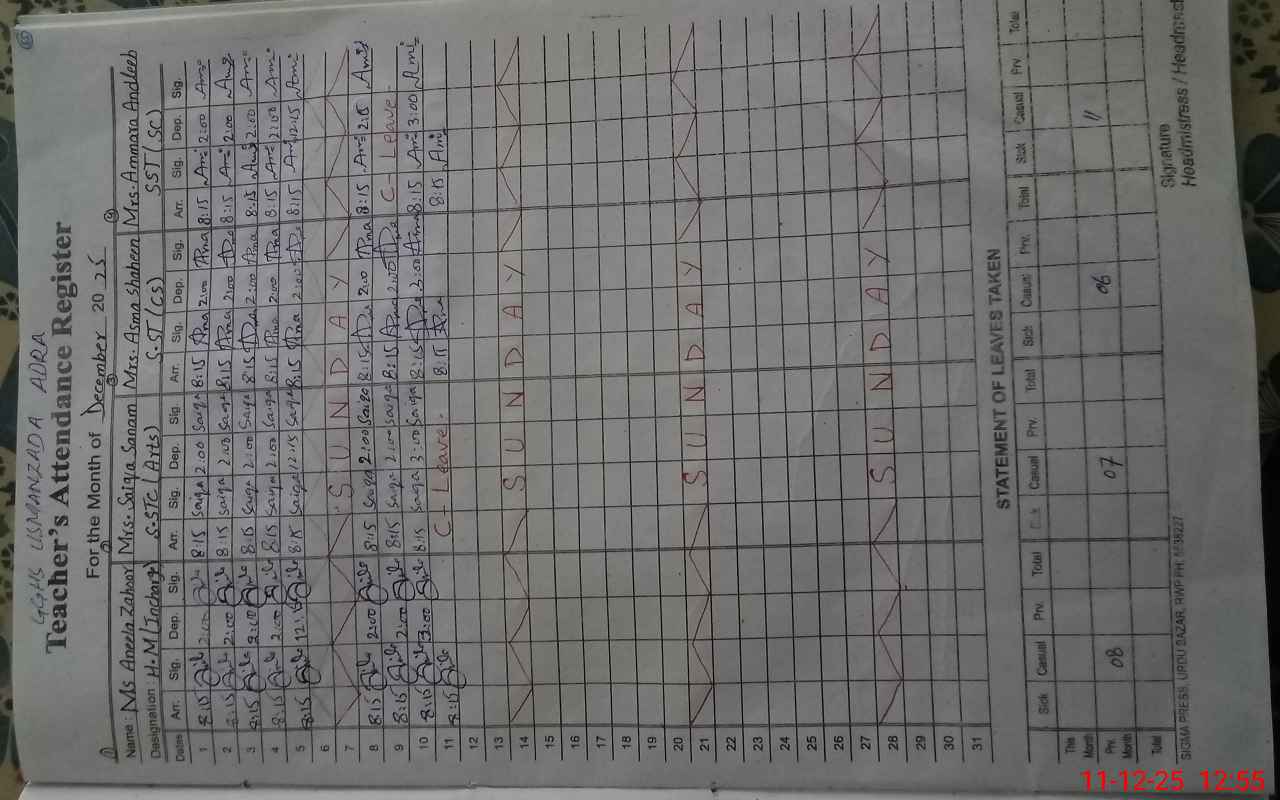 GGHS USMANZADA ADRA
Teacher's Attendance Register
For the Month of December 2025
Name: Ms Aneela Zahoor Mrs. Saiqa Sanam Mrs. Asma Shaheen Mrs. Ammara Andleeb
Designation: H.M (Incharge) S.STC (Arts) S.ST (CS) SST (SC)
Dates Arr. Sig. Dep. Sig. Arr. Sig. Dep. Sig. Arr. Sig. Dep. Sig. Arr. Sig. Dep. Sig.
1 8:15 2:00 8:15 Saiqa 2:00 Saiqa 8:15 2:00 8:15 2:00
2 8:15 2:00 8:15 Saiqa 2:00 Saiqa 8:15 2:00 8:15 2:00
3 8:15 2:00 8:15 Saiqa 2:00 Saiqa 8:15 2:00 8:15 2:00
4 8:15 2:00 8:15 Saiqa 2:00 Saiqa 8:15 2:00 8:15 2:00
5 8:15 8:15 Saiqa 12:15 Saiqa 8:15 2:00 8:15 12:15
6
7 SUNDAY
8 8:15 2:00 8:15 Saiqa 2:00 Saiqa 8:15 2:00 8:15 2:15
9 8:15 2:00 8:15 Saiqa 2:00 Saiqa 8:15 2:00 C-Leave
10 8:15 3:00 8:15 Saiqa 3:00 Saiqa 8:15 3:00 8:15 3:00
11 8:15 C-Leave 8:15 8:15
12
13
14 SUNDAY
15
16
17
18
19
20
21 SUNDAY
22
23
24
25
26
27
28 SUNDAY
29
30
31
STATEMENT OF LEAVES TAKEN
Sick Casual Prv. Total Casual Prv. Total Sick Casual Prv. Total Sick Casual Prv Total
This Month
Prv. Month 08 07 06 11
Total
SIGMA PRESS, URDU BAZAR, RWP PH:
Signature
Headmistress / Headmast
11-12-25 12:55